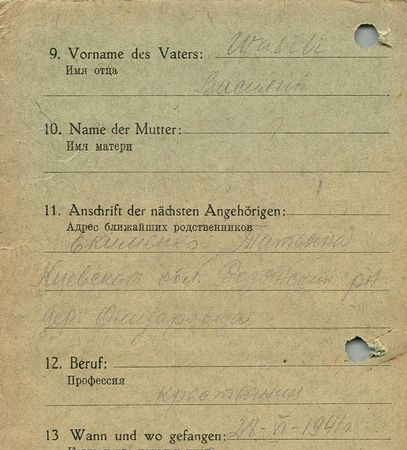 9. Vorname des Vaters: Wasili
Имя отца
Василий
10. Name der Mutter: ?
Имя матери
11. Anschrift der nächsten Angehörigen:
Адрес ближайших родственников
Татьяна
Киевская обл.
дер.
12. Beruf:
Профессия
крестьянин
13 Wann und wo gefangen: 28-VI-1941г